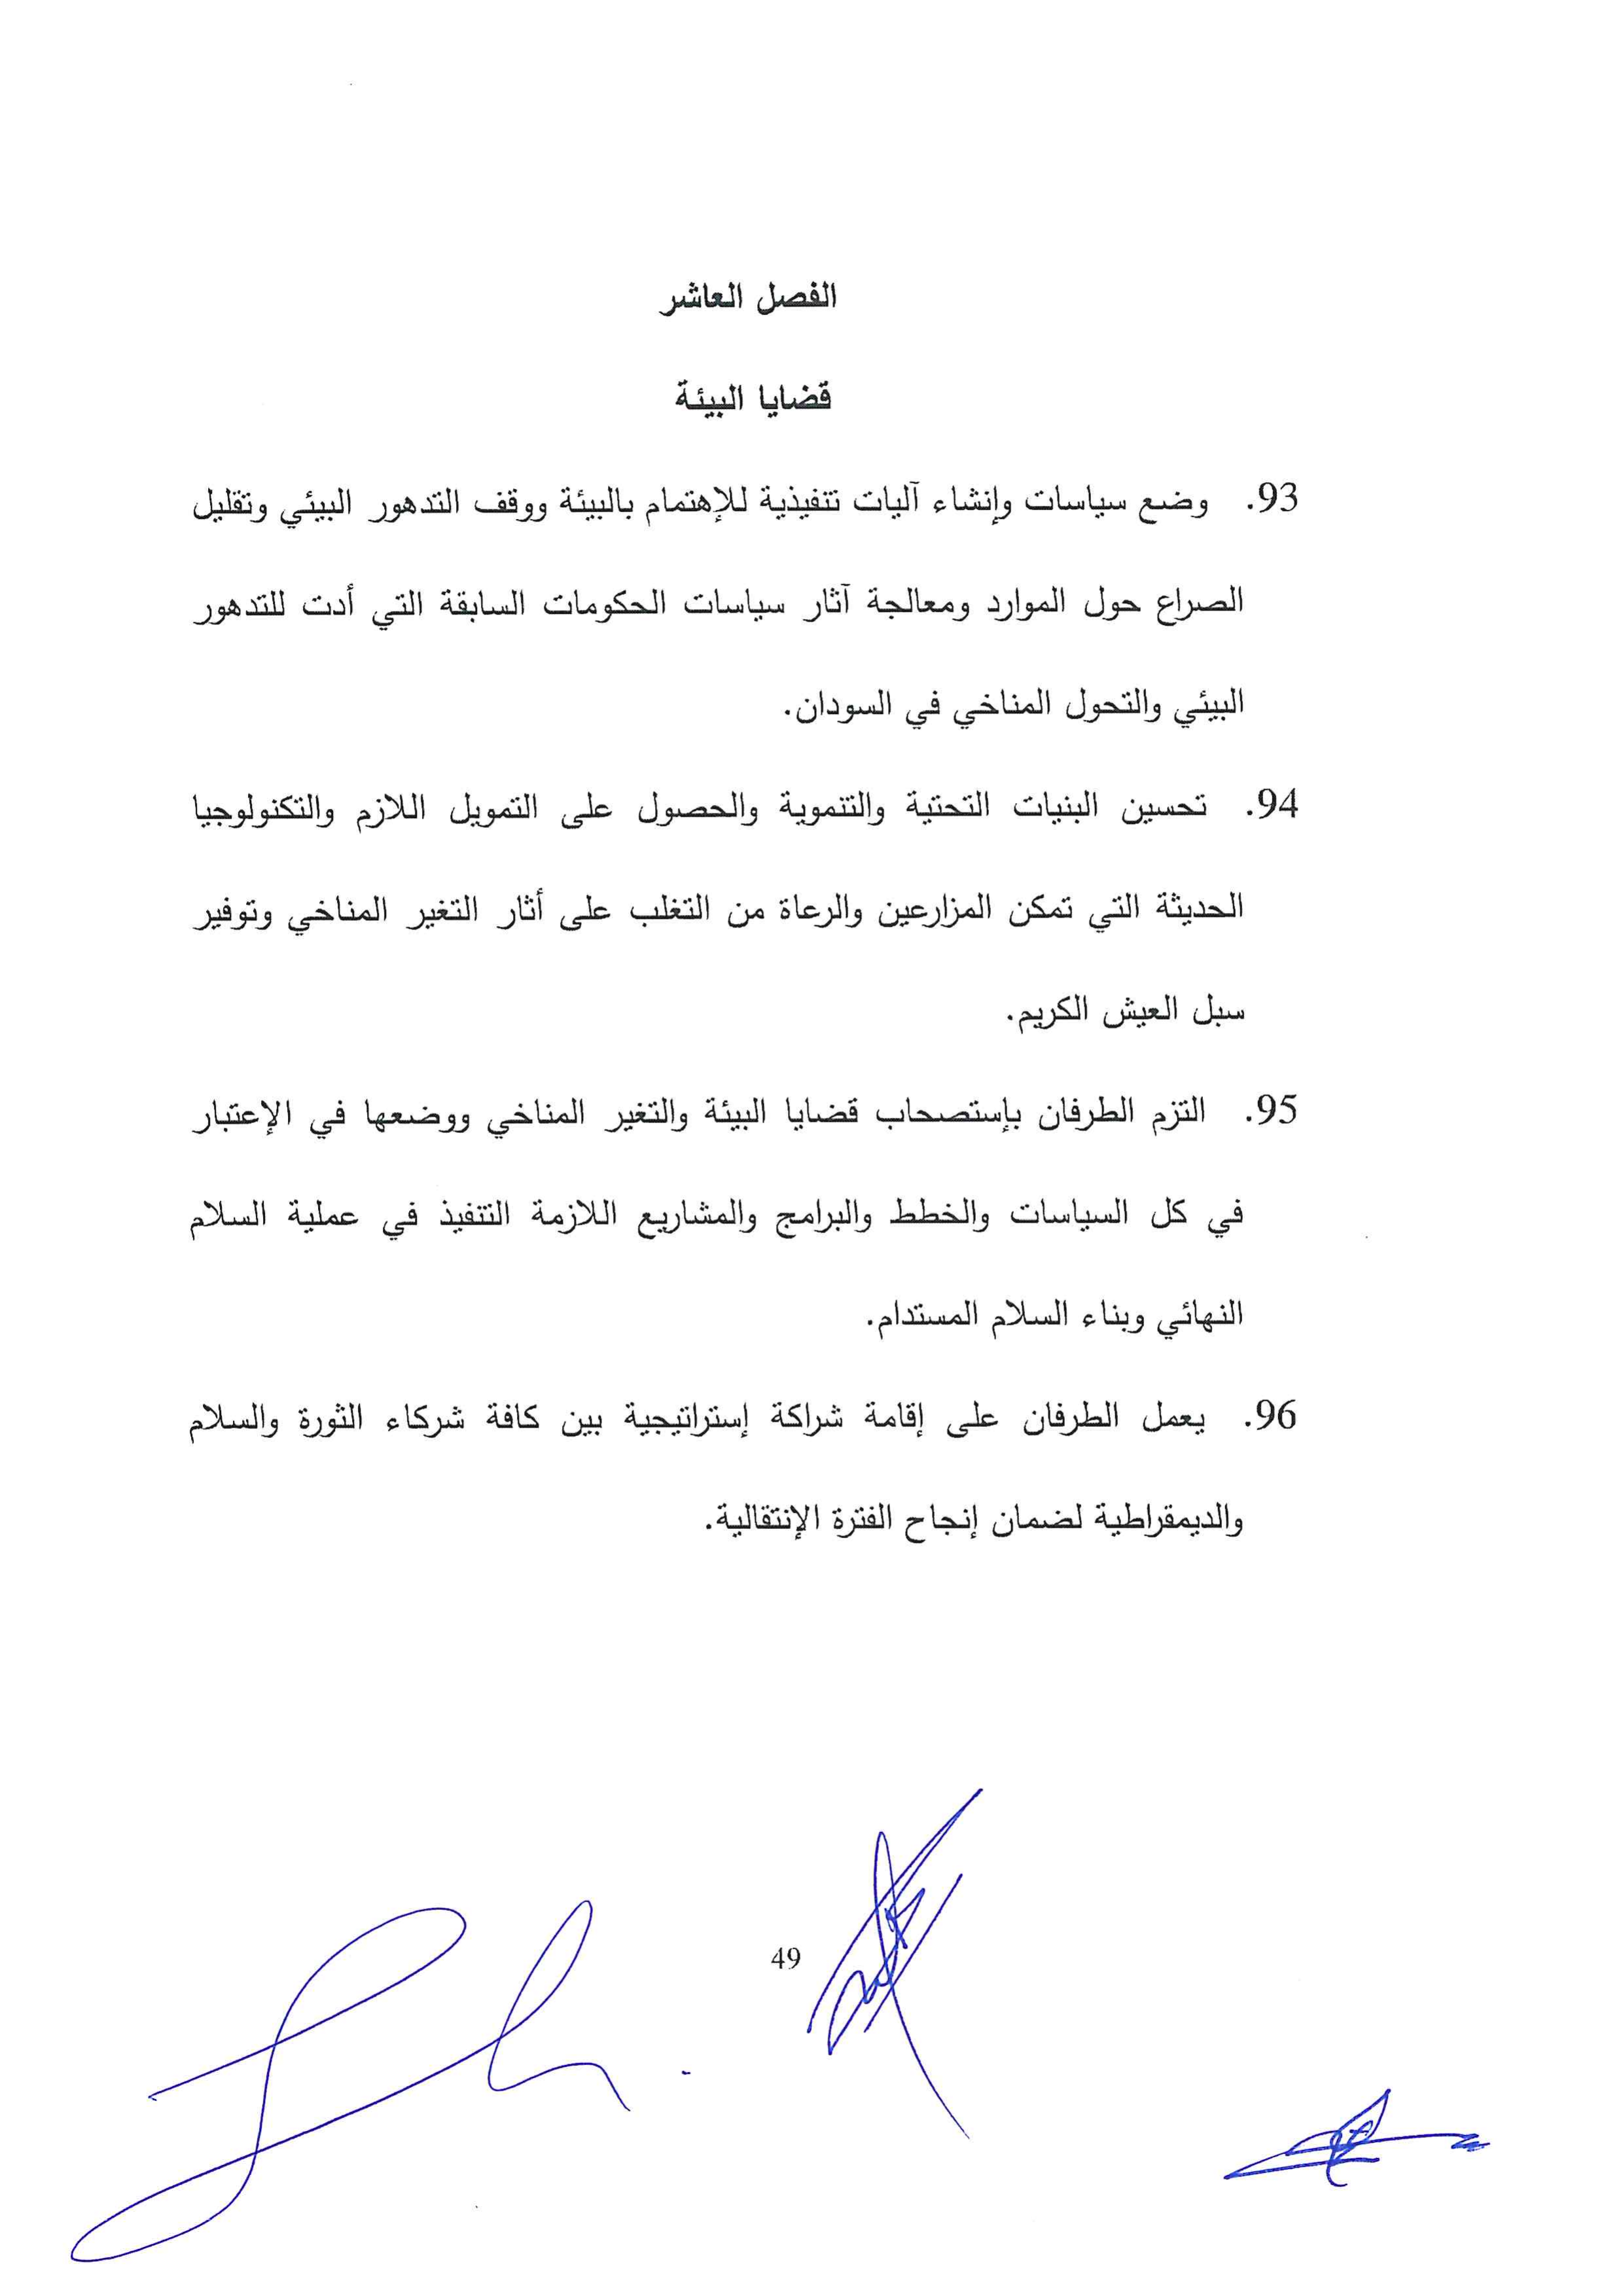 الفصل العاشر
قضايا البيئة
93. وضع سياسات وإنشاء آليات تتفيذية للإهتمام بالبيئة ووقف التدهور البيئي وتقليل
الصراع حول الموارد ومعالجة آثار سياسات الحكومات السابقة التي أدت للتدهور
البيئي والتحول المناخي في السودان.
94. تحسين البنيات التحتية والتنموية والحصول على التمويل اللازم والتكنولوجيا
الحديثة التي تمكن المزارعين والرعاة من التغلب على أثار التغير المناخي وتوفير
سبل العيش الكريم.
95. التزم الطرفان بإستصحاب قضايا البيئة والتغير المناخي ووضعها في الإعتبار
في كل السياسات والخطط والبرامج والمشاريع اللازمة التتفيذ في عملية السلام
النهائي وبناء السلام المستدام.
96. يعمل الطرفان على إقامة شراكة إستراتيجية بين كافة شركاء الثورة والسلام
والديمقراطية لضمان إنجاح الفترة الإنتقالية.
49